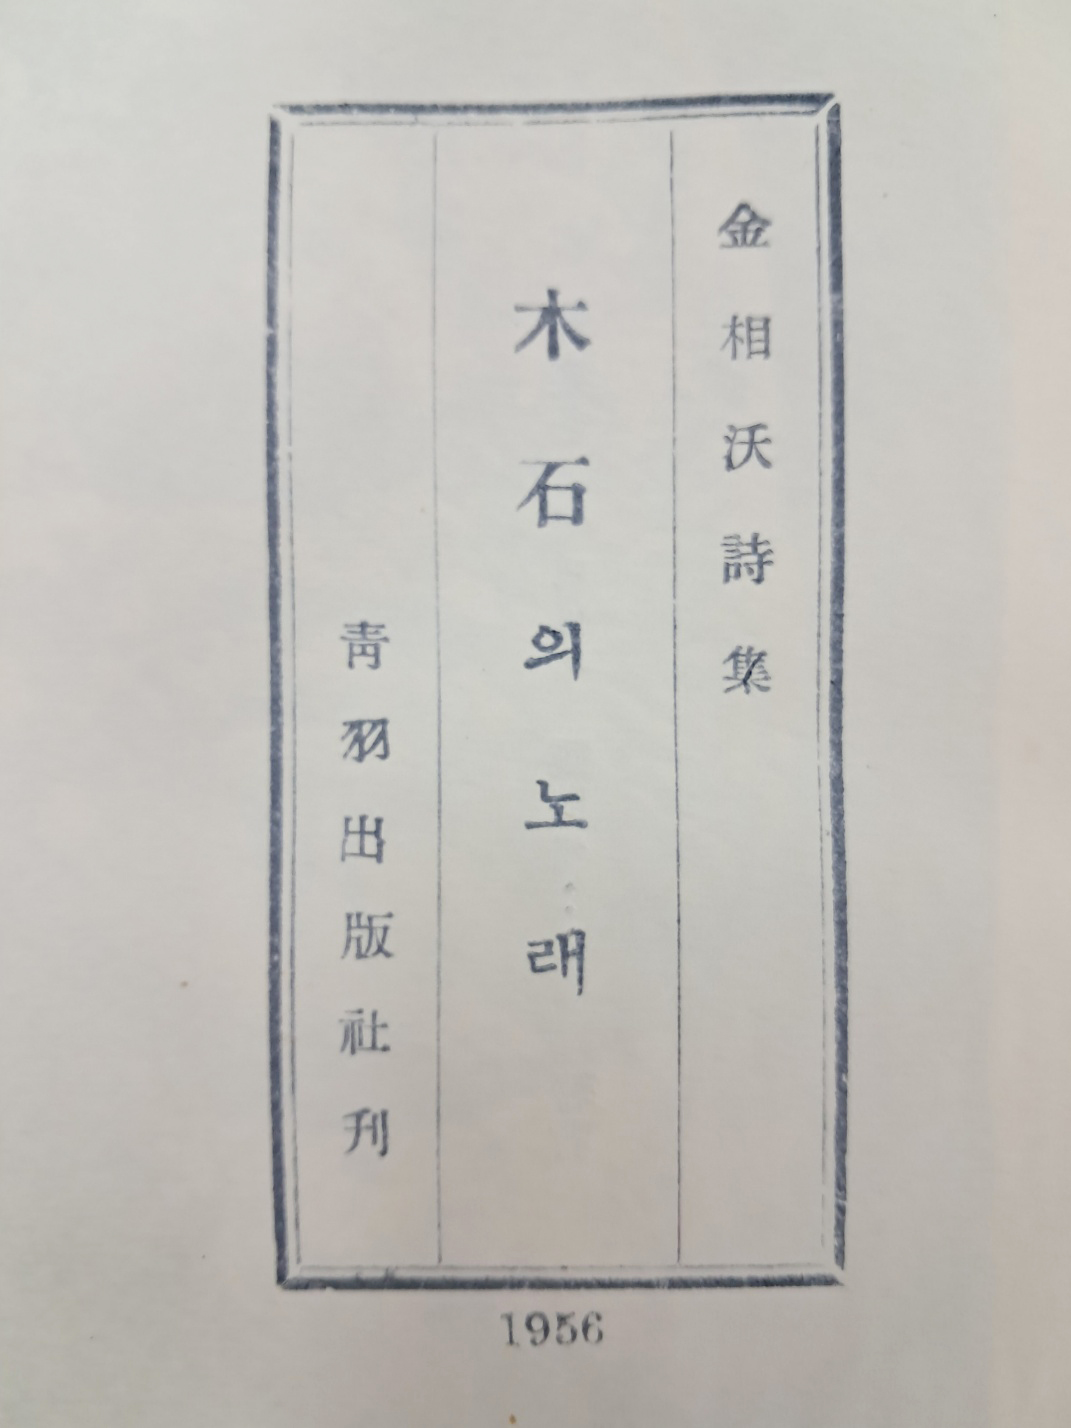 金相沃詩集
木石의노래
靑羽出版社刊
1956